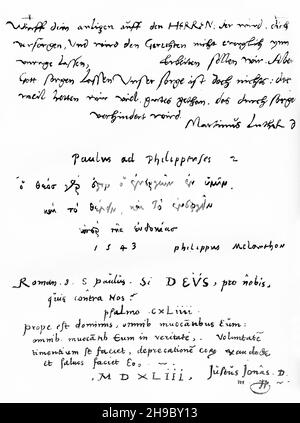 Wirff dein anligen auff den HERRN. der wird dich
versorgen, Und wird den Gerechten nicht ewiglich ynn
unruge lassen, Erbeiten sollen wir. Aber
Gott sorgen lassen Unser sorge ist doch nichts. das
weil hetten wir viel gutes gethan, das durch sorge
verhindert wird
Martinus Luther D
Paulus ad Philippenses 2
ὁ θεὸς γάρ ἐστιν ὁ ἐνεργῶν ἐν ὑμῖν
καὶ τὸ θέλειν, καὶ τὸ ἐνεργεῖν
ὑπὲρ τῆς εὐδοκίας
1543 philippus Melanthon
Roman. 8. S paulus. Si DEVS, pro nobis,
quis contra Nos?
psalmo CXLIIII.
prope est dominus, omnib. invocantibus Eum:
omnib. invocantib Eum in veritate. Voluntatē
timentium se faciet, deprecationē
et salvos faciet Eos.
MDXLIII, Justus Jonas D.
alamy
Image ID: 2H9BY13
www.alamy.com